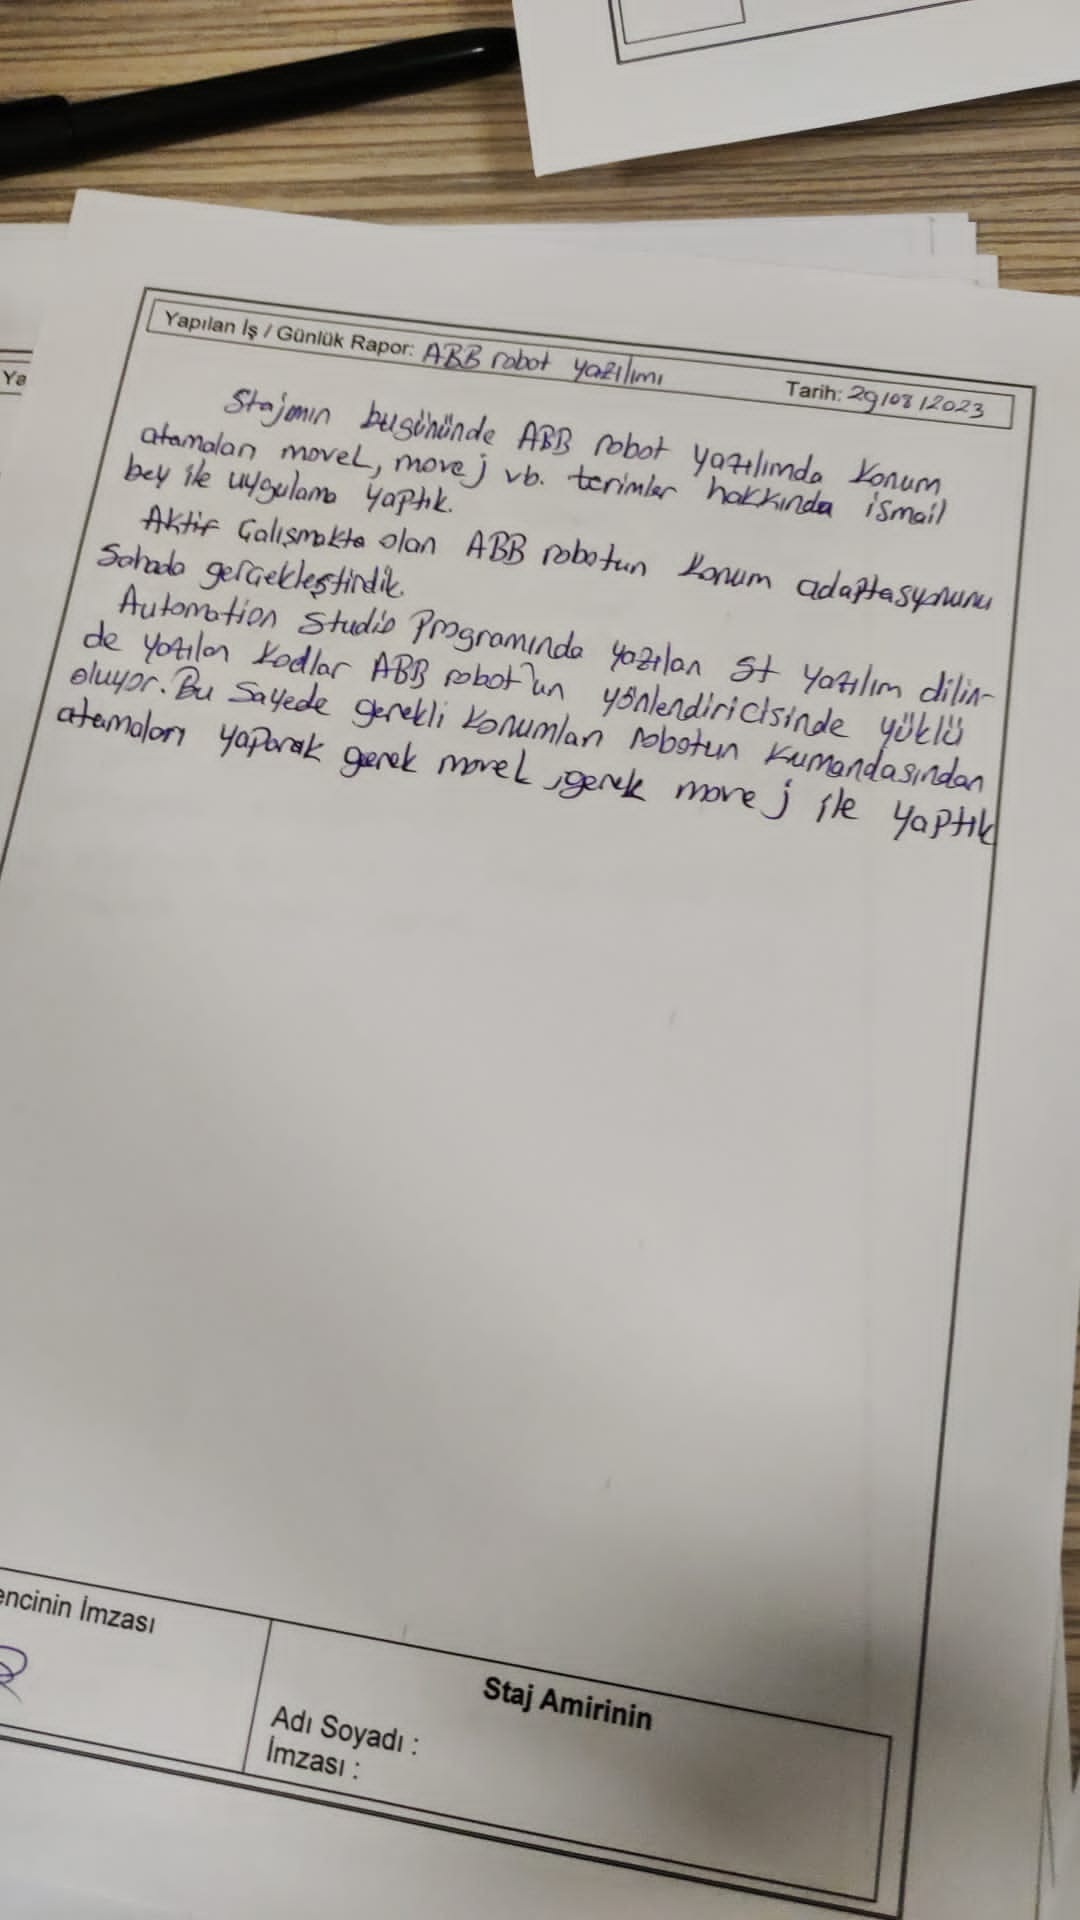 Yapılan İş / Günlük Rapor: ABB robot yazılımı Tarih: 29/08/2023
Stajımın bugününde ABB robot yazılımda konum
atamaları moveL, move j vb. terimler hakkında ismail
bey ile uygulama yaptık.
Aktif Çalışmakta olan ABB robotun konum adaptasyonunu
Sahada gerçekleştirdik.
Automation Studio Programında yazılan St yazılım dilin-
de yazılan kodlar ABB robot'un yönlendiricisinde yüklü
oluyor. Bu Sayede gerekli konumları robotun kumandasından
atamaları yaparak gerek moveL, gerek move j ile yaptık
Ya
encinin İmzası
Staj Amirinin
Adı Soyadı :
İmzası :